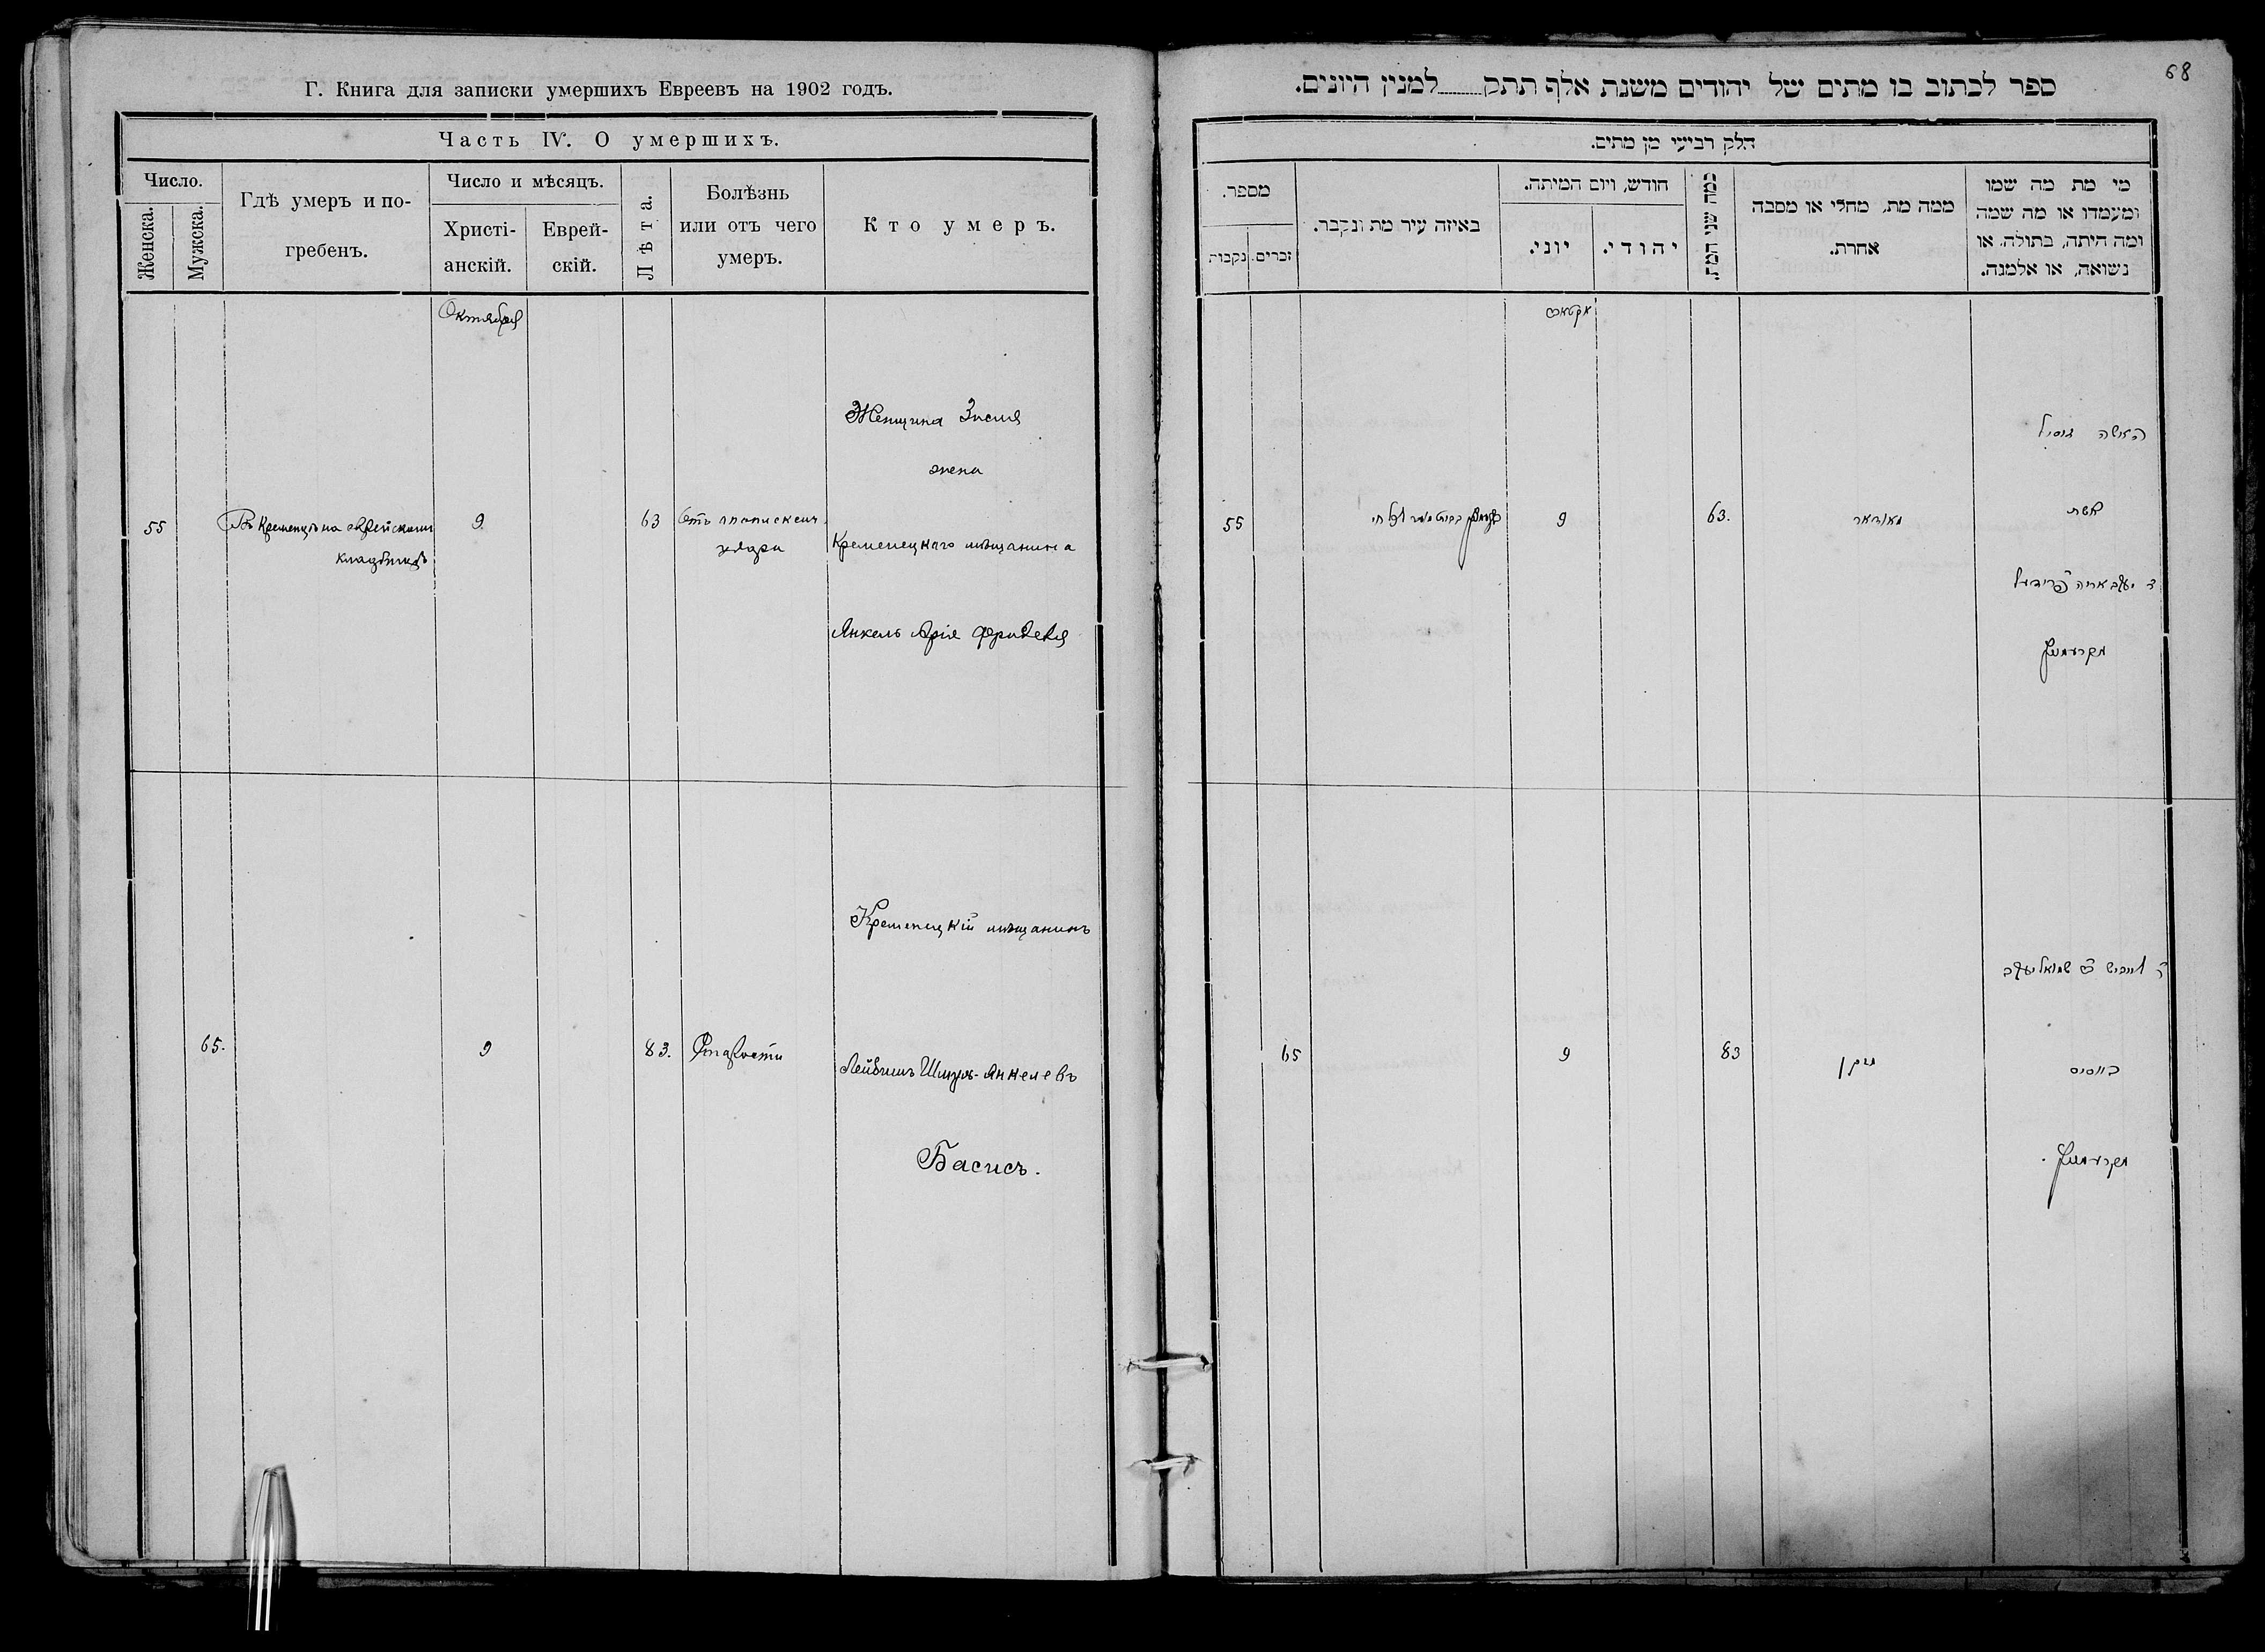 Г. Книга для записки умершихъ Евреевъ на 1902 годъ.
Часть IV. О умершихъ.
Число.
Женска.
Мужска.
Гдѣ умеръ и по-
гребенъ.
Число и мѣсяцъ.
Христі-
анскій.
Еврей-
скій.
Лѣта.
Болѣзнь
или отъ чего
умеръ.
Кто умеръ.
Октября
Женщина Зисля
жена
55
Въ Кременцѣ на еврейскомъ
кладбищѣ
9
63
Отъ
удара
Кременецкаго мѣщанина
Янкель Арія
Кременецкій мѣщанинъ
65.
9
83.
Лейбишъ Шмуль-Янкелевъ
Басисъ.
68
ספר לכתוב בו מתים של יהודים משנת אלף תתק למנין היונים.
חלק רביעי מן מתים.
מספר.
נקבות
זכרים.
באיזה עיר מת ונקבר.
חודש, ויום המיתה.
יוני.
יהודי.
כמה שני המת.
ממה מת, מחלי או מסבה
אחרת.
מי מת מה שמו
ומעמדו או מה שמה
ומה היתה, בתולה, או
נשואה, או אלמנה.
האשה זוסיל
אשת
55
9
63.
יעקב אריה
מקרעמניץ
שמואל יעקב
65
9
83
זקן
באסיס
מקרעמניץ.